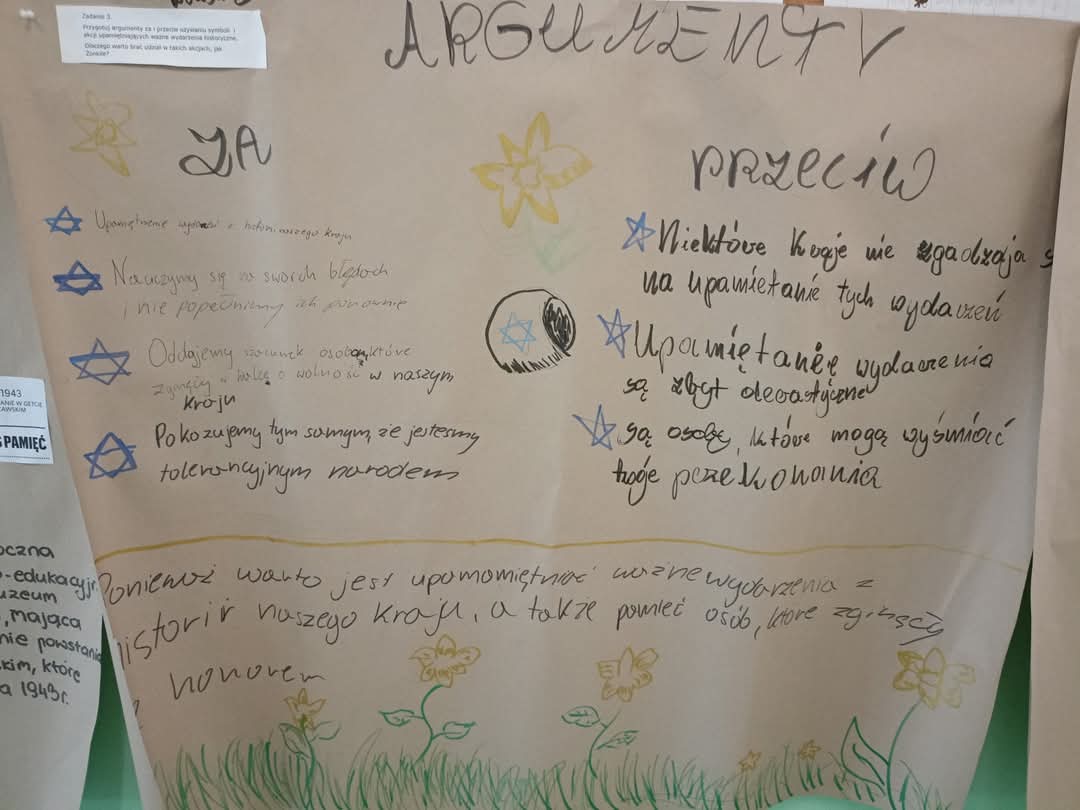 Zadanie 3.
Przygotuj argumenty za i przeciw używaniu symboli i
akcji upamiętniających ważne wydarzenia historyczne.
Dlaczego warto brać udział w takich akcjach, jak
Żonkile?
ARGUMENTY
ZA
Upamiętnienie z naszego kraju
Nauczymy się na swoich błędach
i nie popełnimy ich ponownie
Oddajemy szacunek osobom, które
zginęły w walce o wolność w naszym
kraju
Pokazujemy tym samym, że jesteśmy
tolerancyjnym narodem
PRZECIW
Niektóre kraje nie zgadzają s
na upamietanie tych wydażeń
Upamiętanię wydażenia
są zbyt
są osoby, które mogą wyśmiać
twoje przekonania
Ponieważ warto jest ważne wydarzenia z
historii naszego kraju, a także pamięć osób, które zginęły
z honorem
1943
ANIE W GETCIE
ZAWSKIM
PAMIĘĆ
oczna
o-edukacyj
uzeum
, mająca
nie powstania
kim, które
a 1943r.